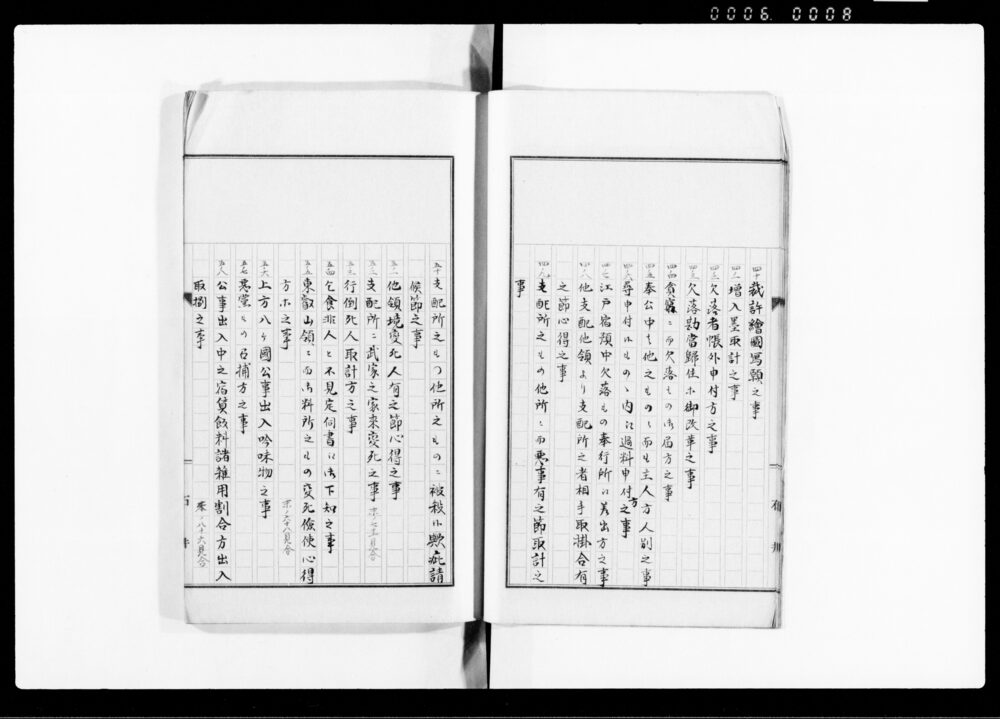 0006 0008
四十 裁許繪圖写願之事
四一 増入墨取計之事
四二 欠落者帳外申付方之事
四三 欠落勘當歸住ホ御改革之事
四四 而欠落之もの御届方之事
四五 奉公中之他之もの而も主人方人別之事
四六 尋申付候もの、内江過料申付方之事
四七 江戸宿預中欠落もの奉行所江差出方之事
四八 他支配他領より支配所之者相手取掛合有
之節心得之事
四九 支配所之もの他所ニ而悪事有之節取計之
事
五十 支配所之もの他所之ものニ被殺候欤疵請
候節之事
五一 他領境変死人有之節心得之事
五二 支配所ニ武家之家来変死之事
五三 行倒死人取計方之事
五四 乞食非人と不見定伺書江御下知之事
五五 東叡山領ニ而御料所之もの変死儉使心得
方ホ之事
五六 上方八ヶ國公事出入吟味物之事
五七 悪黨もの召捕方之事
五八 公事出入中之宿賃飯料諸雜用割合方出入
取捌之事